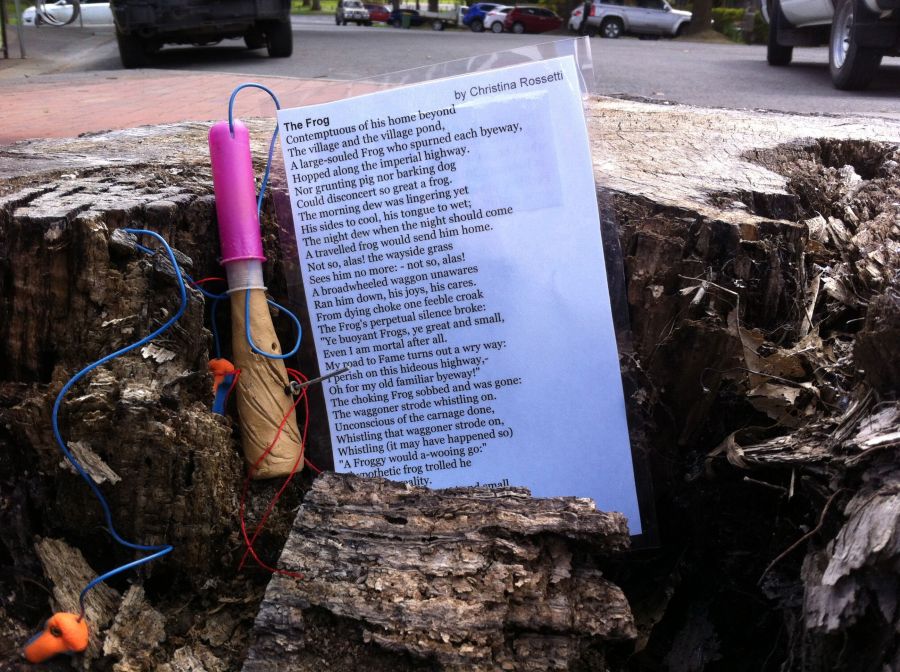 by Christina Rossetti
The Frog
Contemptuous of his home beyond
The village and the village pond,
A large-souled Frog who spurned each byeway,
Hopped along the imperial highway.
Nor grunting pig nor barking dog
Could disconcert so great a frog.
The morning dew was lingering yet
His sides to cool, his tongue to wet;
The night dew when the night should come
A travelled frog would send him home.
Not so, alas! the wayside grass
Sees him no more: - not so, alas!
A broadwheeled waggon unawares
Ran him down, his joys, his cares.
From dying choke one feeble croak
The Frog's perpetual silence broke:
"Ye buoyant Frogs, ye great and small,
Even I am mortal after all.
My road to Fame turns out a wry way:
perish on this hideous highway,-
Oh for my old familiar byeway!"
The choking Frog sobbed and was gone:
The waggoner strode whistling on.
Unconscious of the carnage done,
Whistling that waggoner strode on,
Whistling (it may have happened so)
"A Froggy would a-wooing go:"
frog trolled he
small